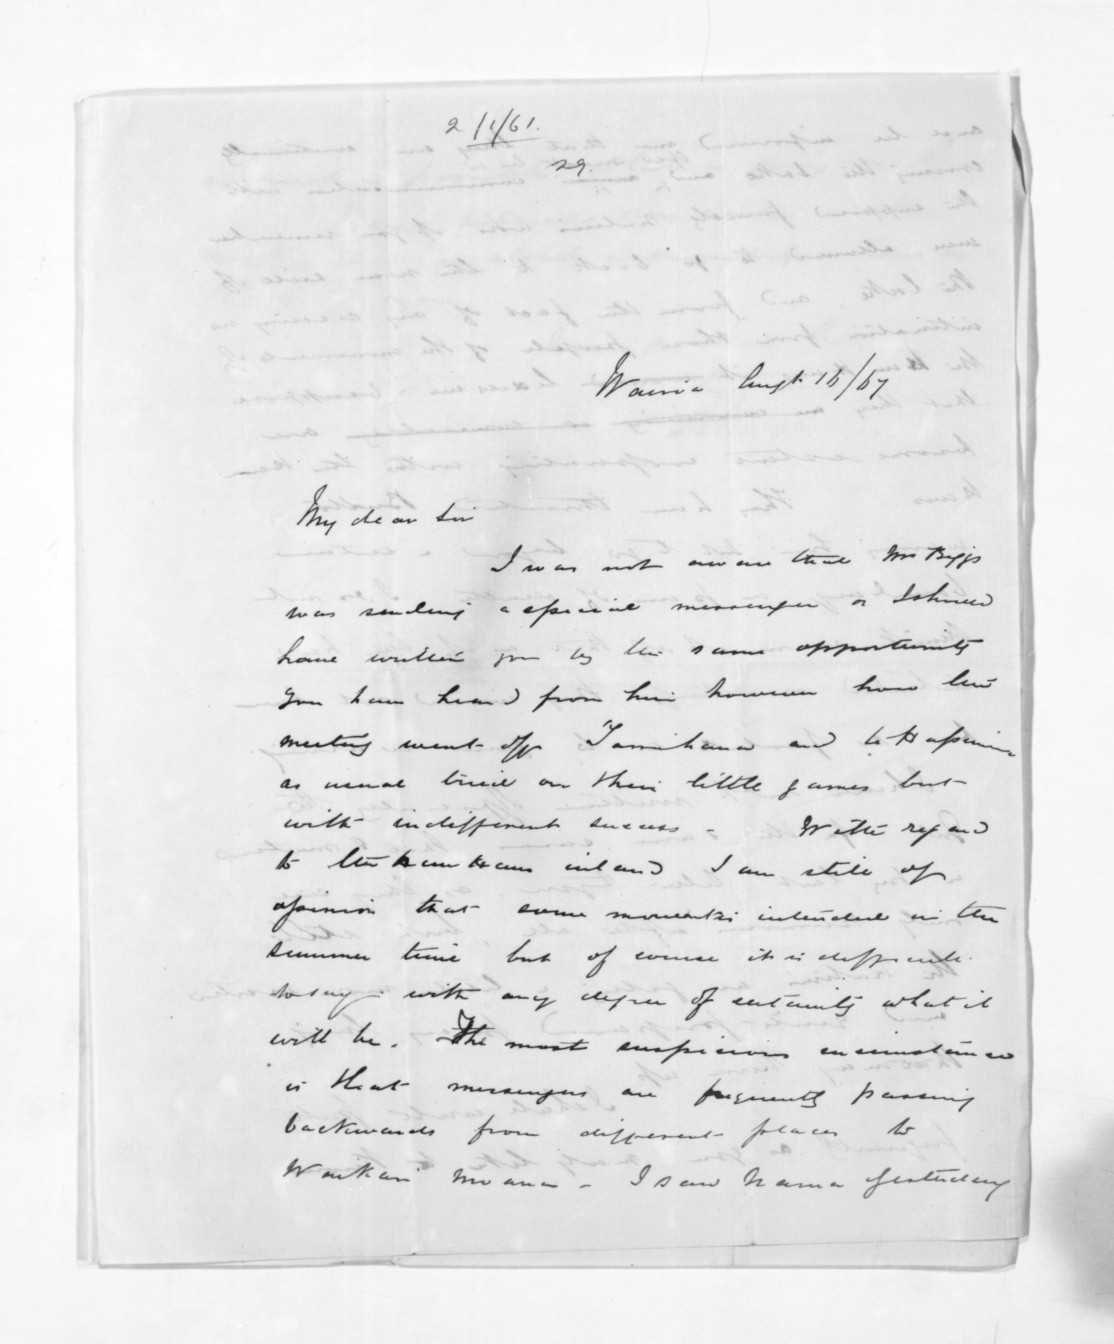 2/1/61.
29.
Wairoa Augt 16/67
My dear Sir
I was not aware that Mr Biggs
was sending a special messenger or I should
have written you by the same opportunity
You have heard from him however how his
meeting went off Tamihana and te Hapimana
as usual tried on their little games but
with indifferent success - With regard
to the Hau Haus inland I am still of
opinion that some movement is intended in the
summer time but of course it is difficult
to say with any degree of certainty what it
will be. The most suspicious circumstance
is that messengers are frequently passing
backwards from different places to
Waikari Moana - I saw Hama yesterday